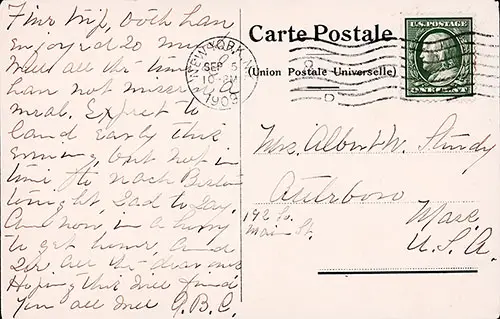 Fine trip, both han
enjoyed 20 much
Well all the time
han not missed a
meal. Expect to
land early this
evening, but not in
time to reach Boston
tonight, Sad to say.
Am now, in a hurry
to get home, and
see all the dear ones
Hoping this will find
you all well G.B.C.
Carte Postale
(Union Postale Universelle)
NEW YORK, N.Y.
SEP 5
10-PM
1909
U.S. POSTAGE
ONE CENT
Mrs. Albert W. Sturdy
Attleboro
192 So.
Main St.
Mass
U.S.A.